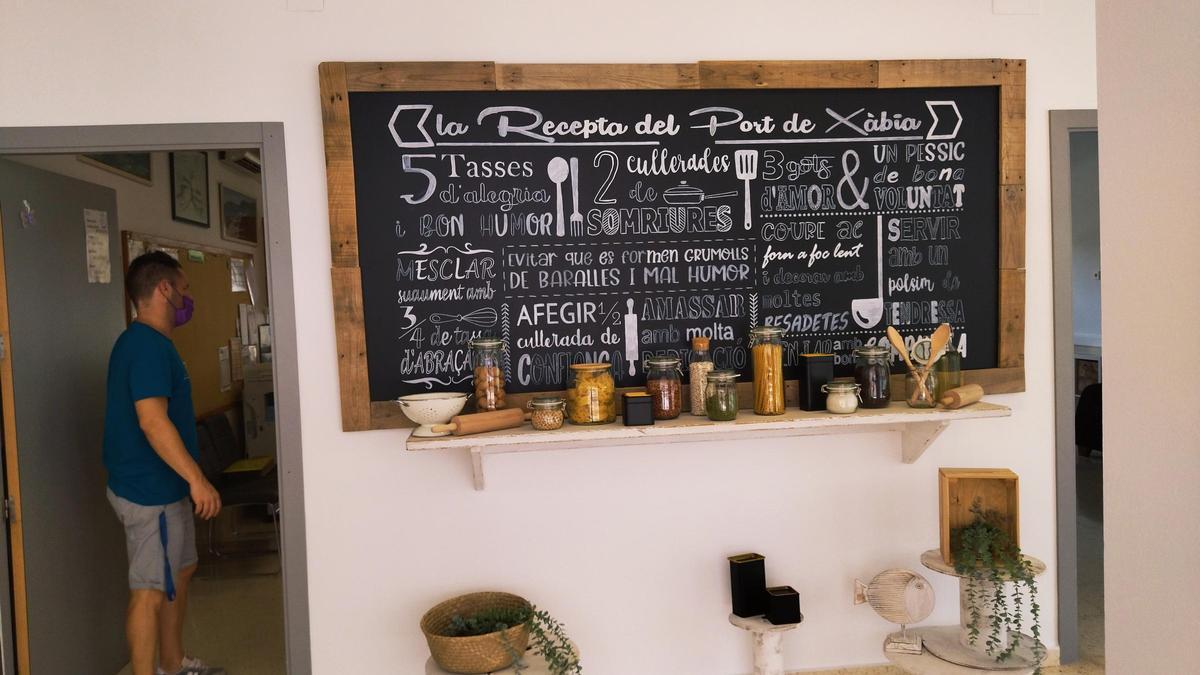 la Recepta del Port de Xàbia
5 Tasses
d'alegria
i BON HUMOR
2 cullerades
de
SOMRIURES
3 gots
d'AMOR
&
UN PESSIC
de bona
VOLUNTAT
MESCLAR
suaument amb
3/4 de tassa
d'ABRAÇA
Evitar que es formen GRUMOLLS
DE BARALLES I MAL HUMOR
AFEGIR 1/2
cullerada de
CONFIANÇA
AMASSAR
amb molta
DEDICACIÓ
COURE AL
forn a foc lent
i decorar amb
moltes
BESADETES
SERVIR
amb un
polsim de
TENDRESSA
amb